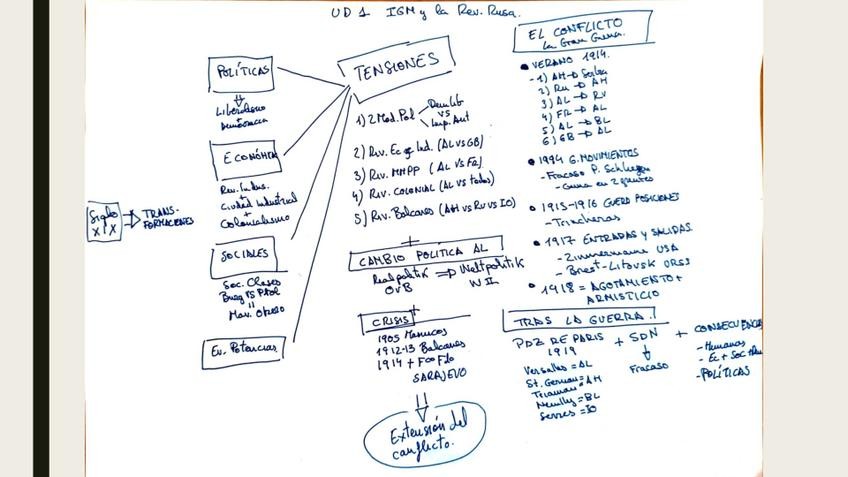 UD 1 IGM y la Rev. Rusa.
Siglo XIX
TRANS-
FORMACIONES
POLÍTICAS
Liberalismo
Democracia
ECONÓMICA
Rev. Indus.
+
Ciudad Industrial
+
Colonialismo
SOCIALES
Soc. Clases
Burg vs Prol
Mov. Obrero
Ev. Potencias
TENSIONES
1) 2 Mod. Pol
Dem Lib
vs
Imp. Aut
2) Riv. Ec e Ind. (AL vs GB)
3) Riv. MMPP (AL vs FR)
4) Riv. COLONIAL (AL vs todos)
5) Riv. Balcanes (AH vs RU vs IO)
+
CAMBIO POLÍTICA AL
Realpolitik ⇒ Weltpolitik
OvB WII
+
CRISIS
1905 Marruecos
1912-13 Balcanes
1914 + Fco Fdo
SARAJEVO
Extensión del
conflicto.
EL CONFLICTO
La Gran Guerra.
• VERANO 1914.
- 1) AH → Serbia
2) RU → AH
3) AL → RU
4) FR → AL
5) AL → BL
6) GB → AL
• 1994 G. MOVIMIENTOS
- Fracaso P. Schlieffen
- Guerra en 2 frentes
• 1915-1916 GUERRA POSICIONES
- Trincheras
• 1917 ENTRADAS Y SALIDAS.
- Zimmermann USA
- Brest-Litovsk URSS
• 1918 = AGOTAMIENTO +
ARMISTICIO
TRAS LA GUERRA.
PAZ DE PARIS + SDN + CONSECUENCIAS
1919
Fracaso
- Humanas
- Ec + Soc
- POLÍTICAS
Versalles = AL
St. Germain = AH
Trianon = AH
Neuilly = BL
Sevres = IO